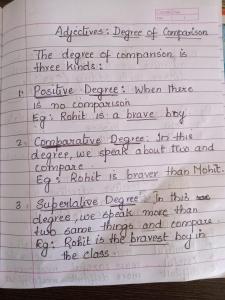 Adjectives: Degree of Comparison
The degree of comparison is
three kinds:
1. Positive Degree: When there
is no comparison
Eg: Rohit is a brave boy
2. Comparative Degree: In this
degree, we speak about two and
compare
Eg: Rohit is braver than Mohit.
3. Superlative Degree: In this
degree, we speak more than
two same things and compare.
Eg: Rohit is the bravest boy in
the class.